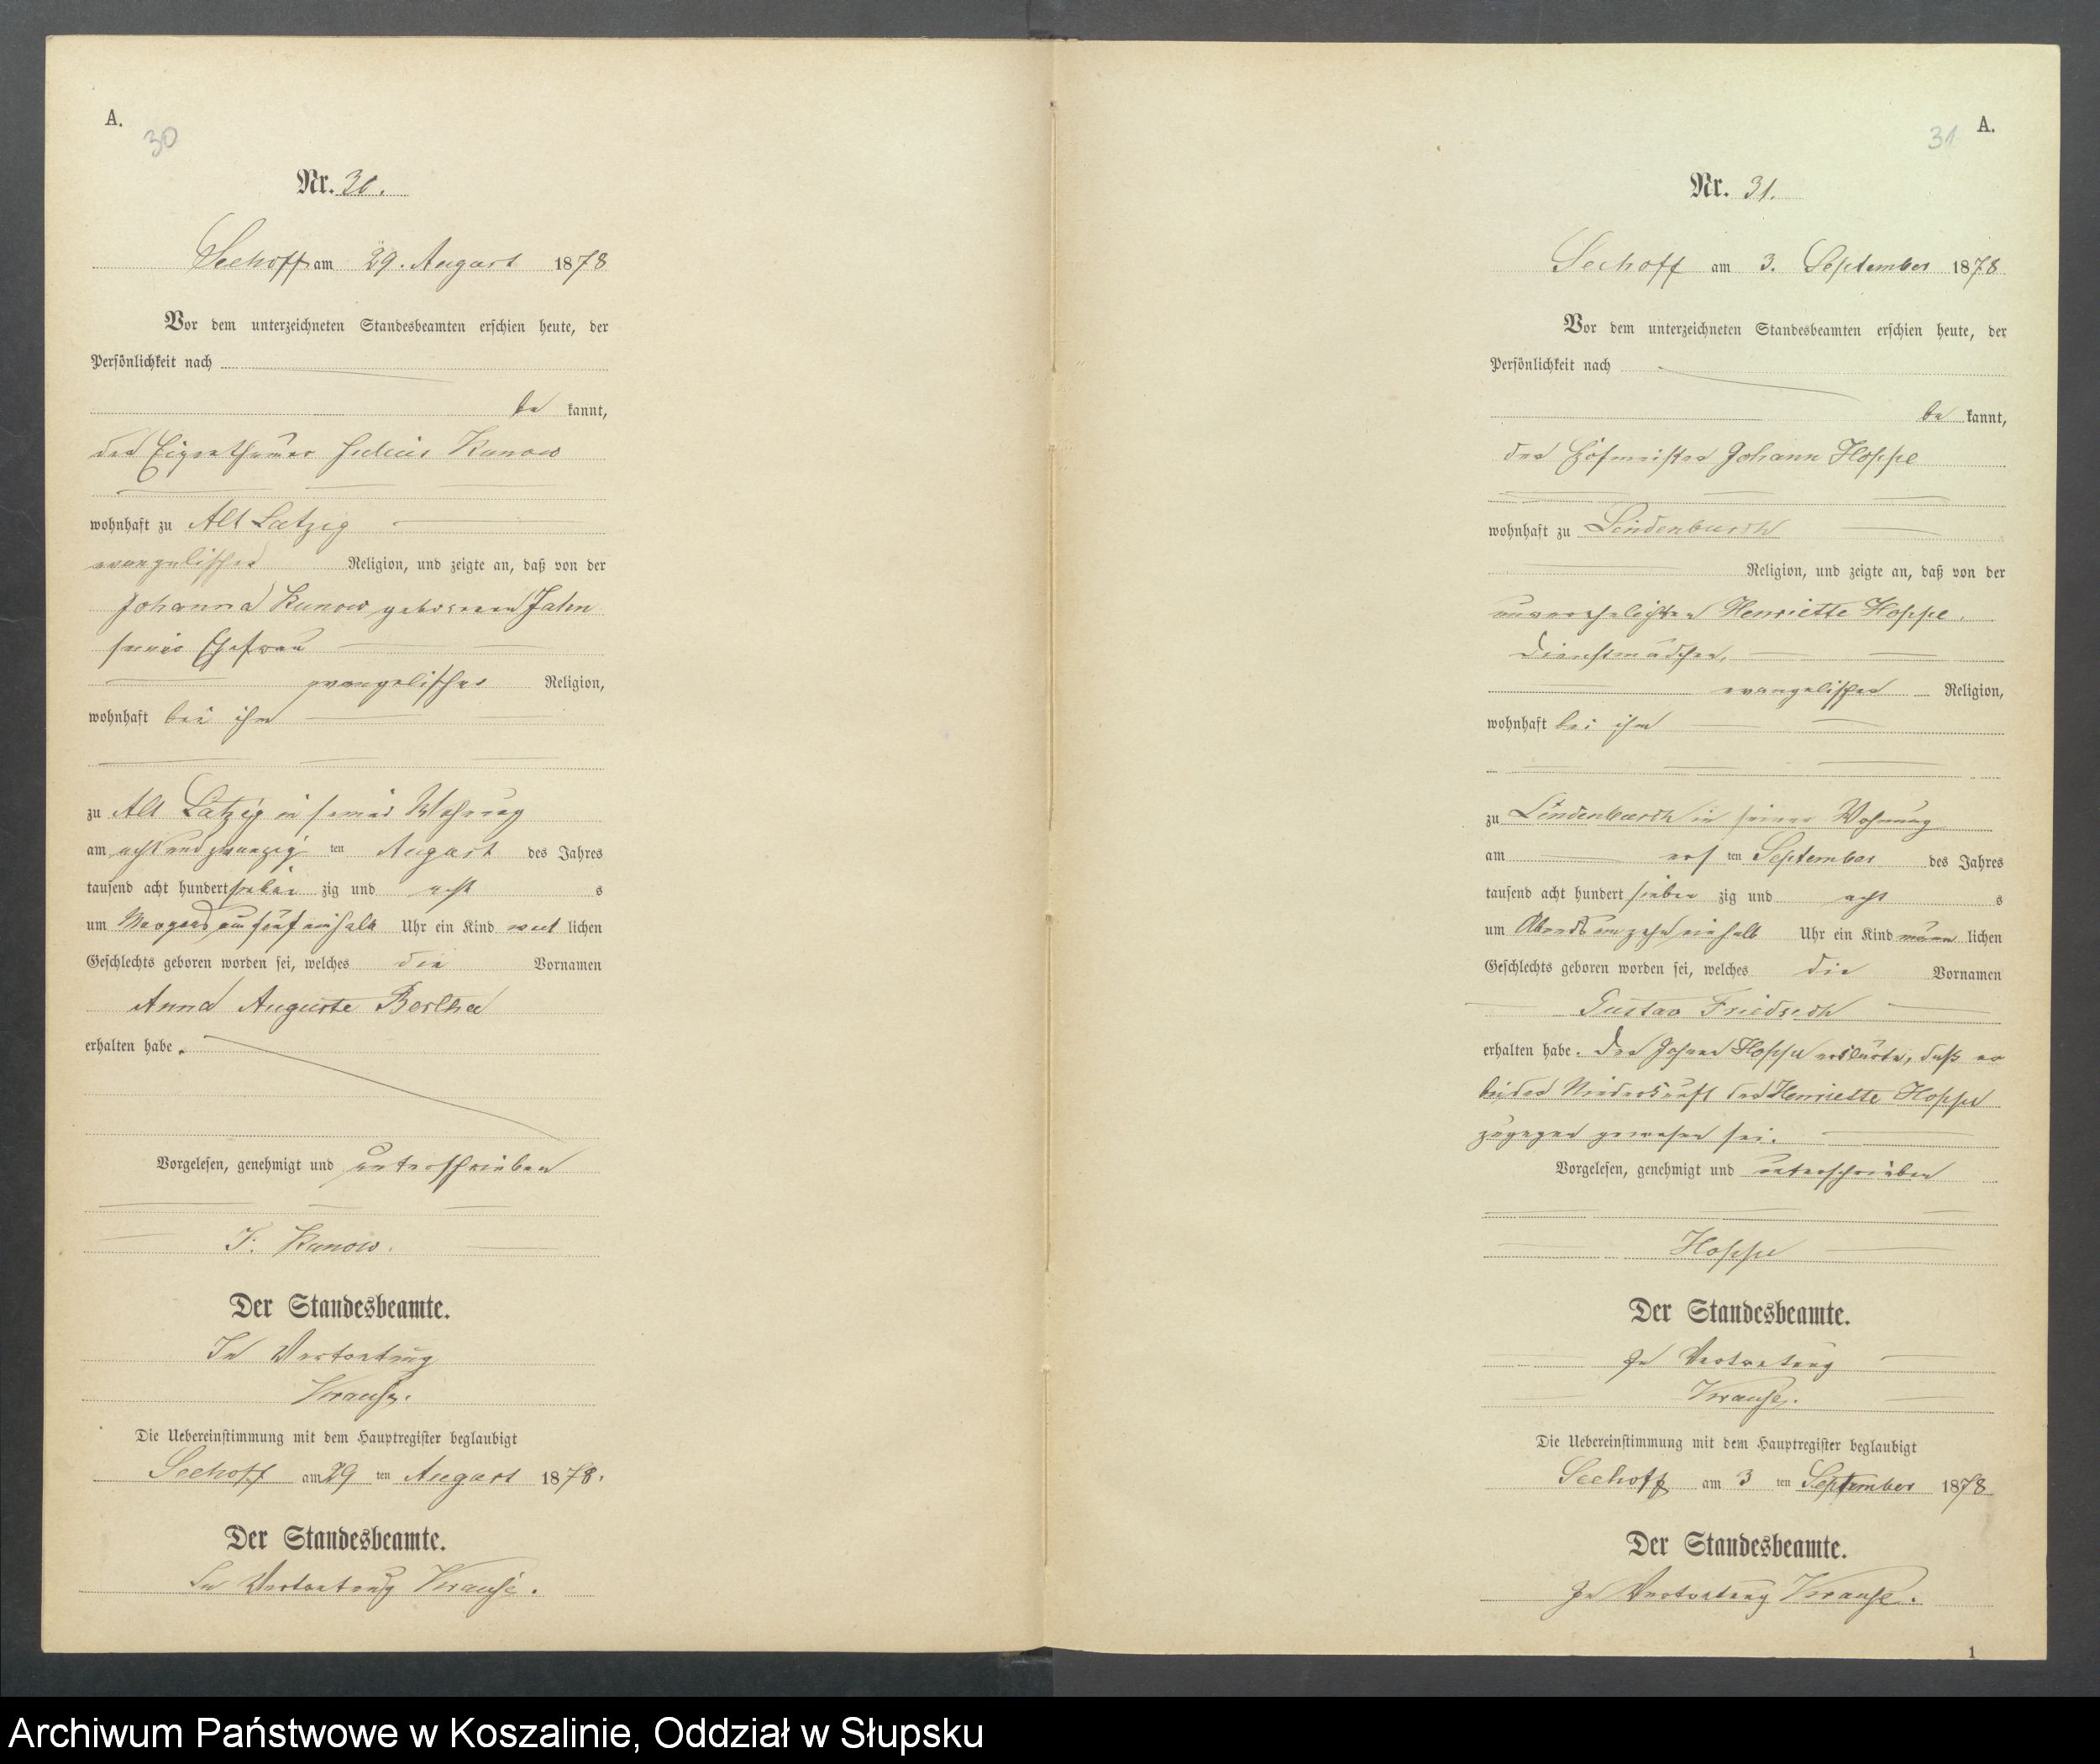 A.
30
Nr. 30.
Seehoff am 29. August 1878
Vor dem unterzeichneten Standesbeamten erschien heute, der
Persönlichkeit nach
be kannt,
der Eigenthümer Julius Kunow
wohnhaft zu Alt Latzig
evangelischer Religion, und zeigte an, daß von der
Johanna Kunow geborenen Jahn
seiner Ehefrau
evangelischer Religion,
wohnhaft bei ihm
zu Alt Latzig in seiner Wohnung
am acht und zwanzig ten August des Jahres
tausend acht hundert sieben zig und acht s
um Morgens um fünf einhalb Uhr ein Kind weib lichen
Geschlechts geboren worden sei, welches die Vornamen
Anna Auguste Bertha
erhalten habe.
Vorgelesen, genehmigt und unterschrieben
J. Kunow.
Der Standesbeamte.
In Vertretung
Krause.
Die Uebereinstimmung mit dem Hauptregister beglaubigt
Seehoff am 29 ten August 1878.
Der Standesbeamte.
In Vertretung Krause.
31
A.
Nr. 31.
Seehoff am 3. September 1878
Vor dem unterzeichneten Standesbeamten erschien heute, der
Persönlichkeit nach
be kannt,
der Hofmeister Johann Hoppe
wohnhaft zu Lindenbusch
Religion, und zeigte an, daß von der
unverehelichten Henriette Hoppe,
Dienstmädchen,
evangelischer Religion,
wohnhaft bei ihm
zu Lindenbusch in seiner Wohnung
am ers ten September des Jahres
tausend acht hundert sieben zig und acht s
um Abends um zehn einhalb Uhr ein Kind männ lichen
Geschlechts geboren worden sei, welches die Vornamen
Gustav Friedrich
erhalten habe. Der Johann Hoppe erklärte, daß er
bei der Niederkunft der Henriette Hoppe
zugegen gewesen sei.
Vorgelesen, genehmigt und unterschrieben
Hoppe
Der Standesbeamte.
In Vertretung
Krause.
Die Uebereinstimmung mit dem Hauptregister beglaubigt
Seehoff am 3 ten September 1878
Der Standesbeamte.
In Vertretung Krause.
1
Archiwum Państwowe w Koszalinie, Oddział w Słupsku